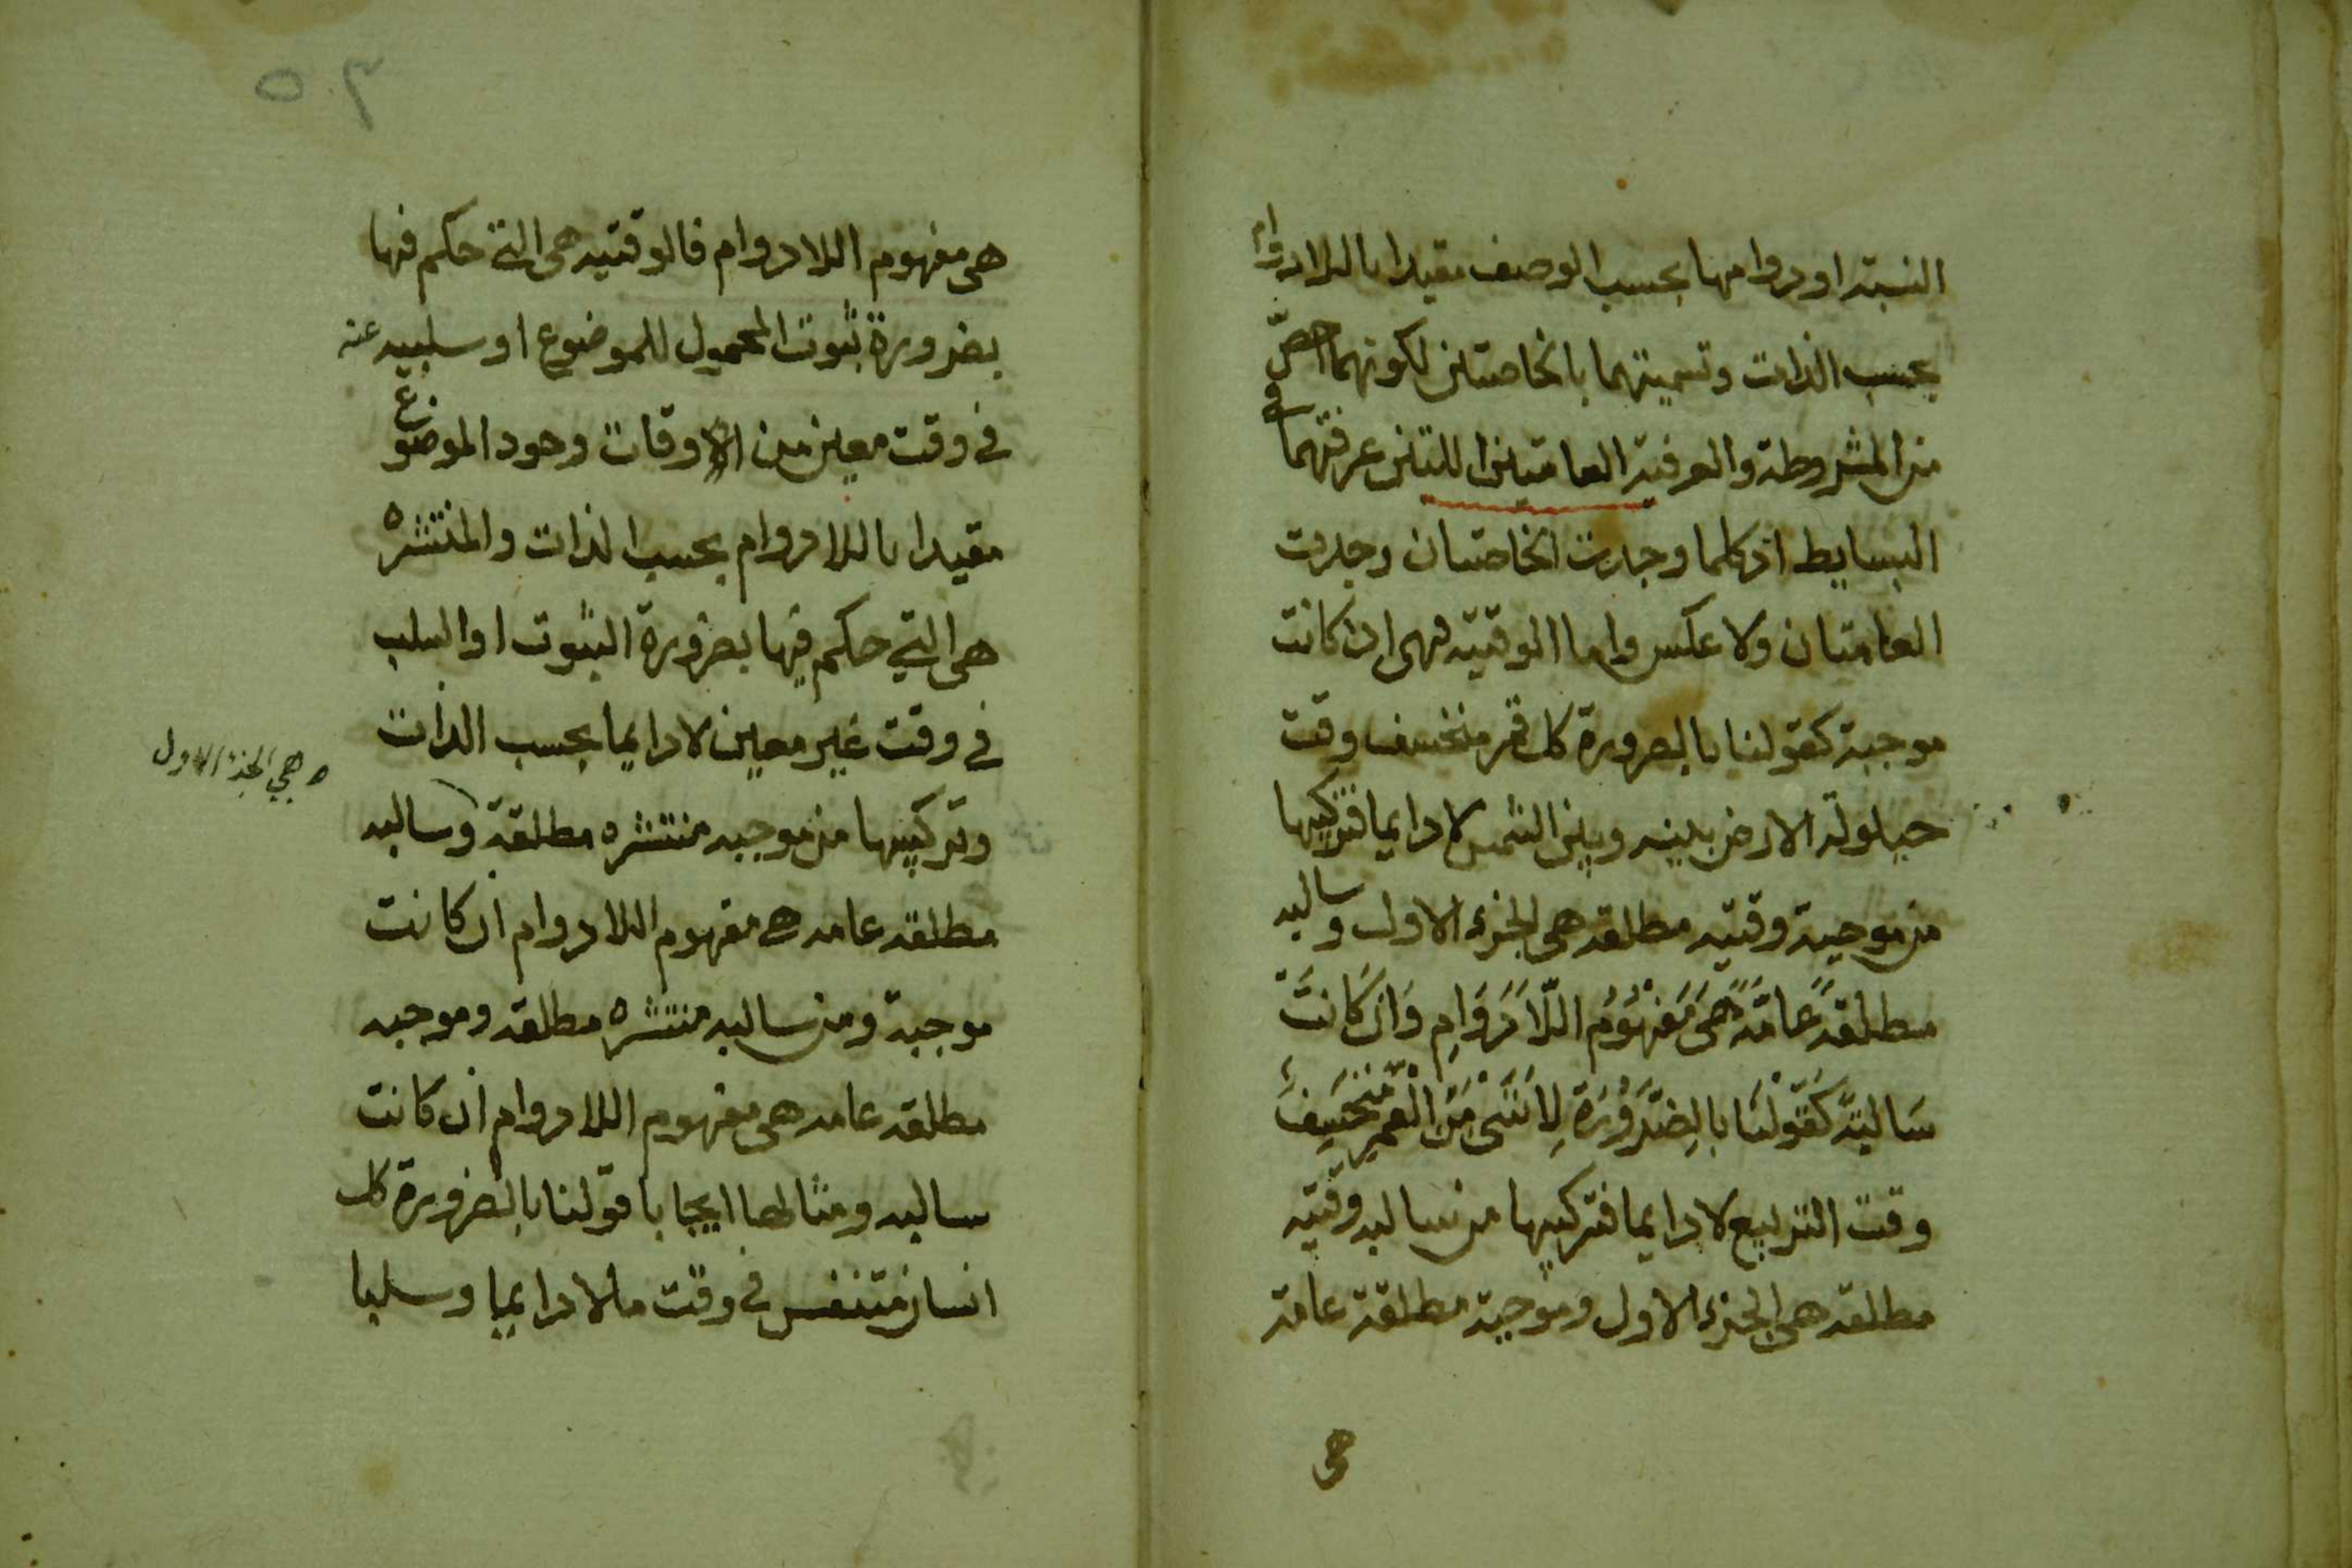 النسبة او دوامها بحسب الوصف مقيدا باللادوام
بحسب الذات وتسميتهما بالخاصتين لكونهما اخصّ
من المشروطة والعرفية العامتين اللتين عرفتهما في
البسايط اذ كلما وجدت الخاصتان وجدت
العامتان ولا عكس واما الوقتيه فهى ان كانت
موجبة كقولنا بالضرورة كل قمر منخسف وقت
حيلولة الارض بينه وبين الشمس لا دايما فتركيبها
من موجبة وقتيه مطلقه هى الجزء الاول وسالبه
مطلقةً عَامَّةً هىَ مَفهُوُم اللَّادَوَامِ وَان كَانَتْ
سَالبةً كَقَوْلنَا بالِضَّرَوُرَة لِا شَىْ مَنَ القمر بمُنْخَسِفَ
وقت التربيع لا دايما فتركيبها من سالبه وقتيه
مطلقه هى الجزء الاول وموجبة مطلقة عامة
هى
٦٥
هى مفهوم اللادوام فالوقتيه هى التي حكم فيها
بضرورة ثبوت المحمول للموضوع او سلبيه عنه
في وقت معين من الاوقات وجود الموضوع
مقيدا باللادوام بحسب الذات والمنتشره
هى التي حكم فيها بضرورة الثبوت او السلب
في وقت غير معين لا دايما بحسب الذات
وتركيبها من موجبه منتشره مطلقة وسالبه
هي الجزء الاول
مطلقه عامه هي مفهوم اللادوام ان كانت
موجبة ومن سالبه منتشره مطلقه وموجبه
مطلقه عامه هى مفهوم اللادوام ان كانت
سالبه ومثالها ايجابا قولنا بالضرورة كل
انسان متنفس في وقت ما لا دايما وسلبا